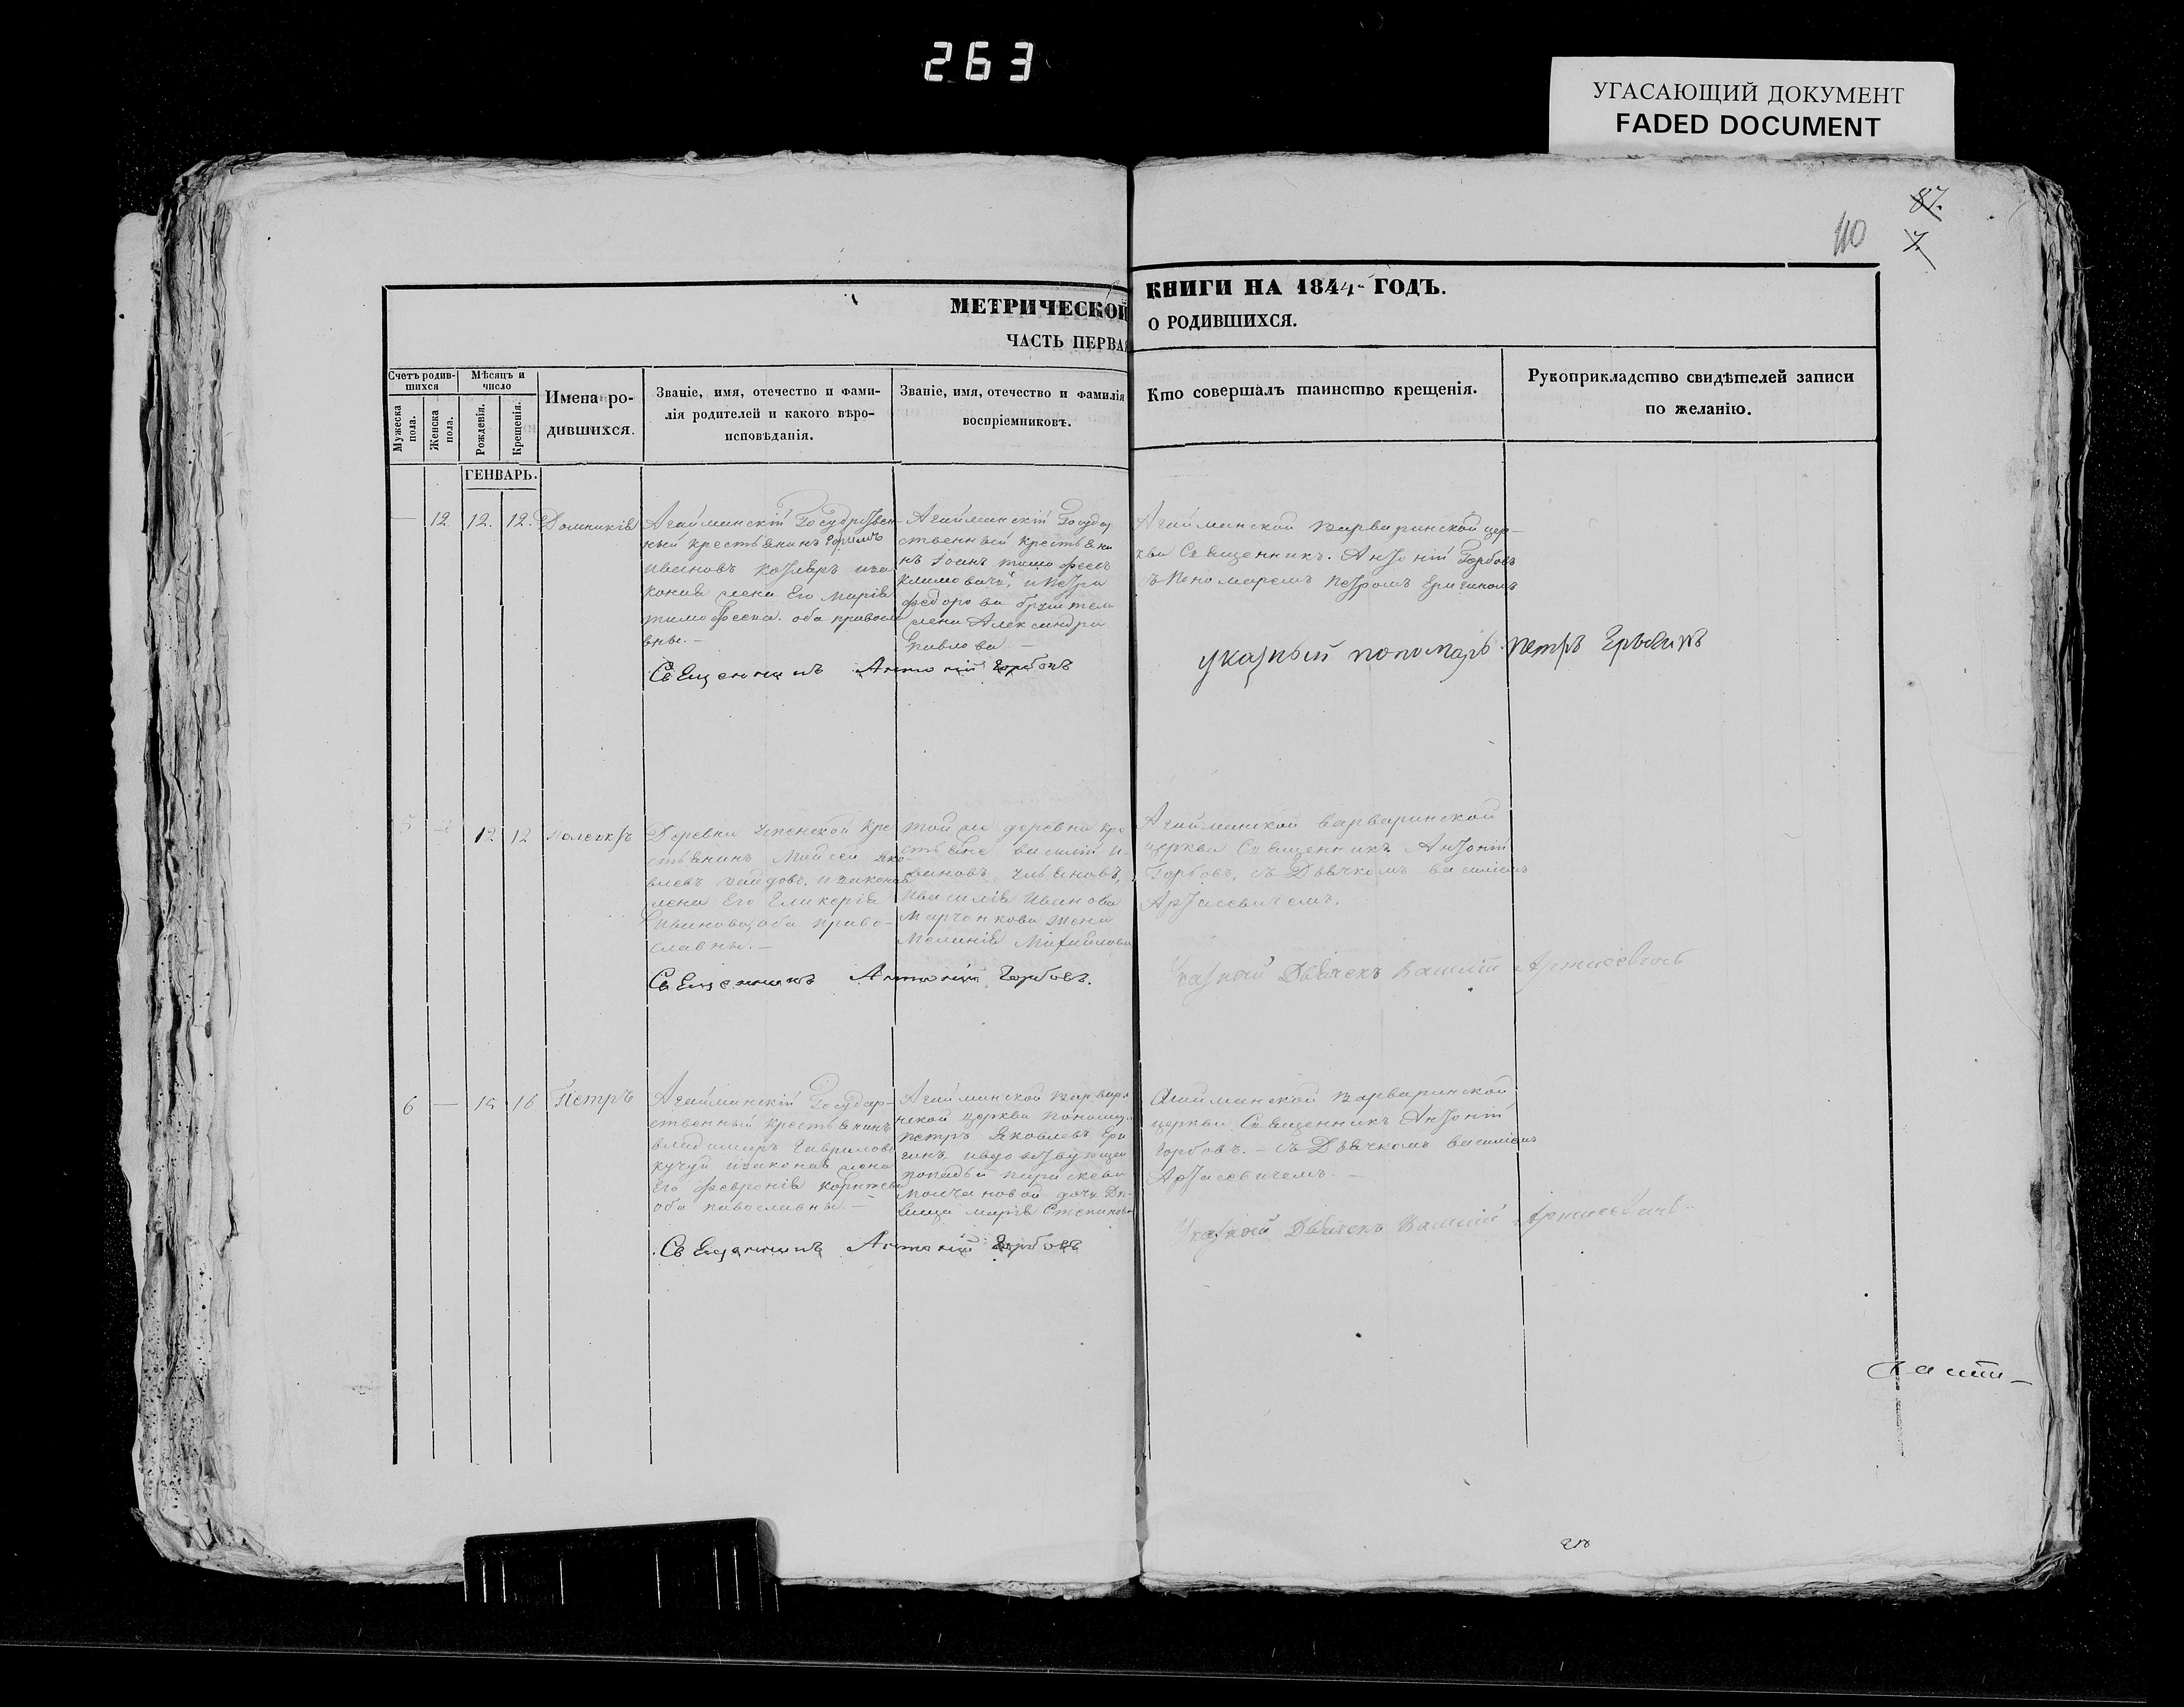 263
УГАСАЮЩИЙ ДОКУМЕНТ
FADED DOCUMENT
87.
7.
110
МЕТРИЧЕСКОЙ
КНИГИ НА 1844 ГОДЪ.
ЧАСТЬ ПЕРВАЯ
О РОДИВШИХСЯ.
Счетъ родив-
шихся
Мужеска пола.
Женска пола.
Мѣсяцъ и
число
Рожденія.
Крещенія.
Имена ро-
дившихся.
Званіе, имя, отечество и фами-
лія родителей и какого вѣро-
исповѣданія.
Званіе, имя, отечество и фамилія
воспріемниковъ.
Кто совершалъ таинство крещенія.
Рукоприкладство свидѣтелей записи
по желанію.
ГЕНВАРЬ.
— 12. 12. 12. Домникія
Агайманскій Государствен-
ный крестьянинъ
Ивановъ Козляръ и за
конная жена Его Марія
тимофеева. оба православ
вны. —
Агайманскій Государ
ственный крестьяни
нъ Іоанъ тимофеевъ
климовичъ, и Петра
федорова
жена Александра
Павлова —
Агайманской Варваринской цер-
кви Священникъ. Антоній Горбовъ
съ Пономаремъ Петромъ Еригиномъ
Священникъ Антоній Горбовъ
указный пономарь Петръ Еригинъ
5 — 12 12
Деревни Успенской Кре
стьянинъ Моисей Яко-
влевъ Гайдовъ, и законная
жена Его Гликерія
Иванова, оба Право-
славны. —
той же деревни кре
стьяне василій И-
вановъ Ульяновъ,
Ивасилія Иванова
Марченкова жена
Меланія Михайлова
Агайманской варваринской
церкви Священникъ Антоній
Горбовъ, съ Дьячкомъ василіемъ
Артасевичемъ.
Священникъ Антоній Горбовъ.
Указный Дьячекъ Василій Артасевичъ
6 — 15 16 Петръ
Агайманскій Государ-
ственный Крестьянинъ
владимиръ Гавриловъ
кучуй и законная жена
Его Февронія
оба павославны. —
Агайманской Варвари
нской церкви Пономар
Петръ Яковлевъ Ери
гинъ, и вдовствующей
попадьи параскевы
дочь Дѣ-
вица марія Степанова
Агайманской Варваринской
церкви Священникъ Антоній
Горбовъ. — съ Дьячкомъ василіемъ
Артасевичемъ. —
Священникъ Антоній Горбовъ
Указный Дьячекъ Василій Артасевичъ